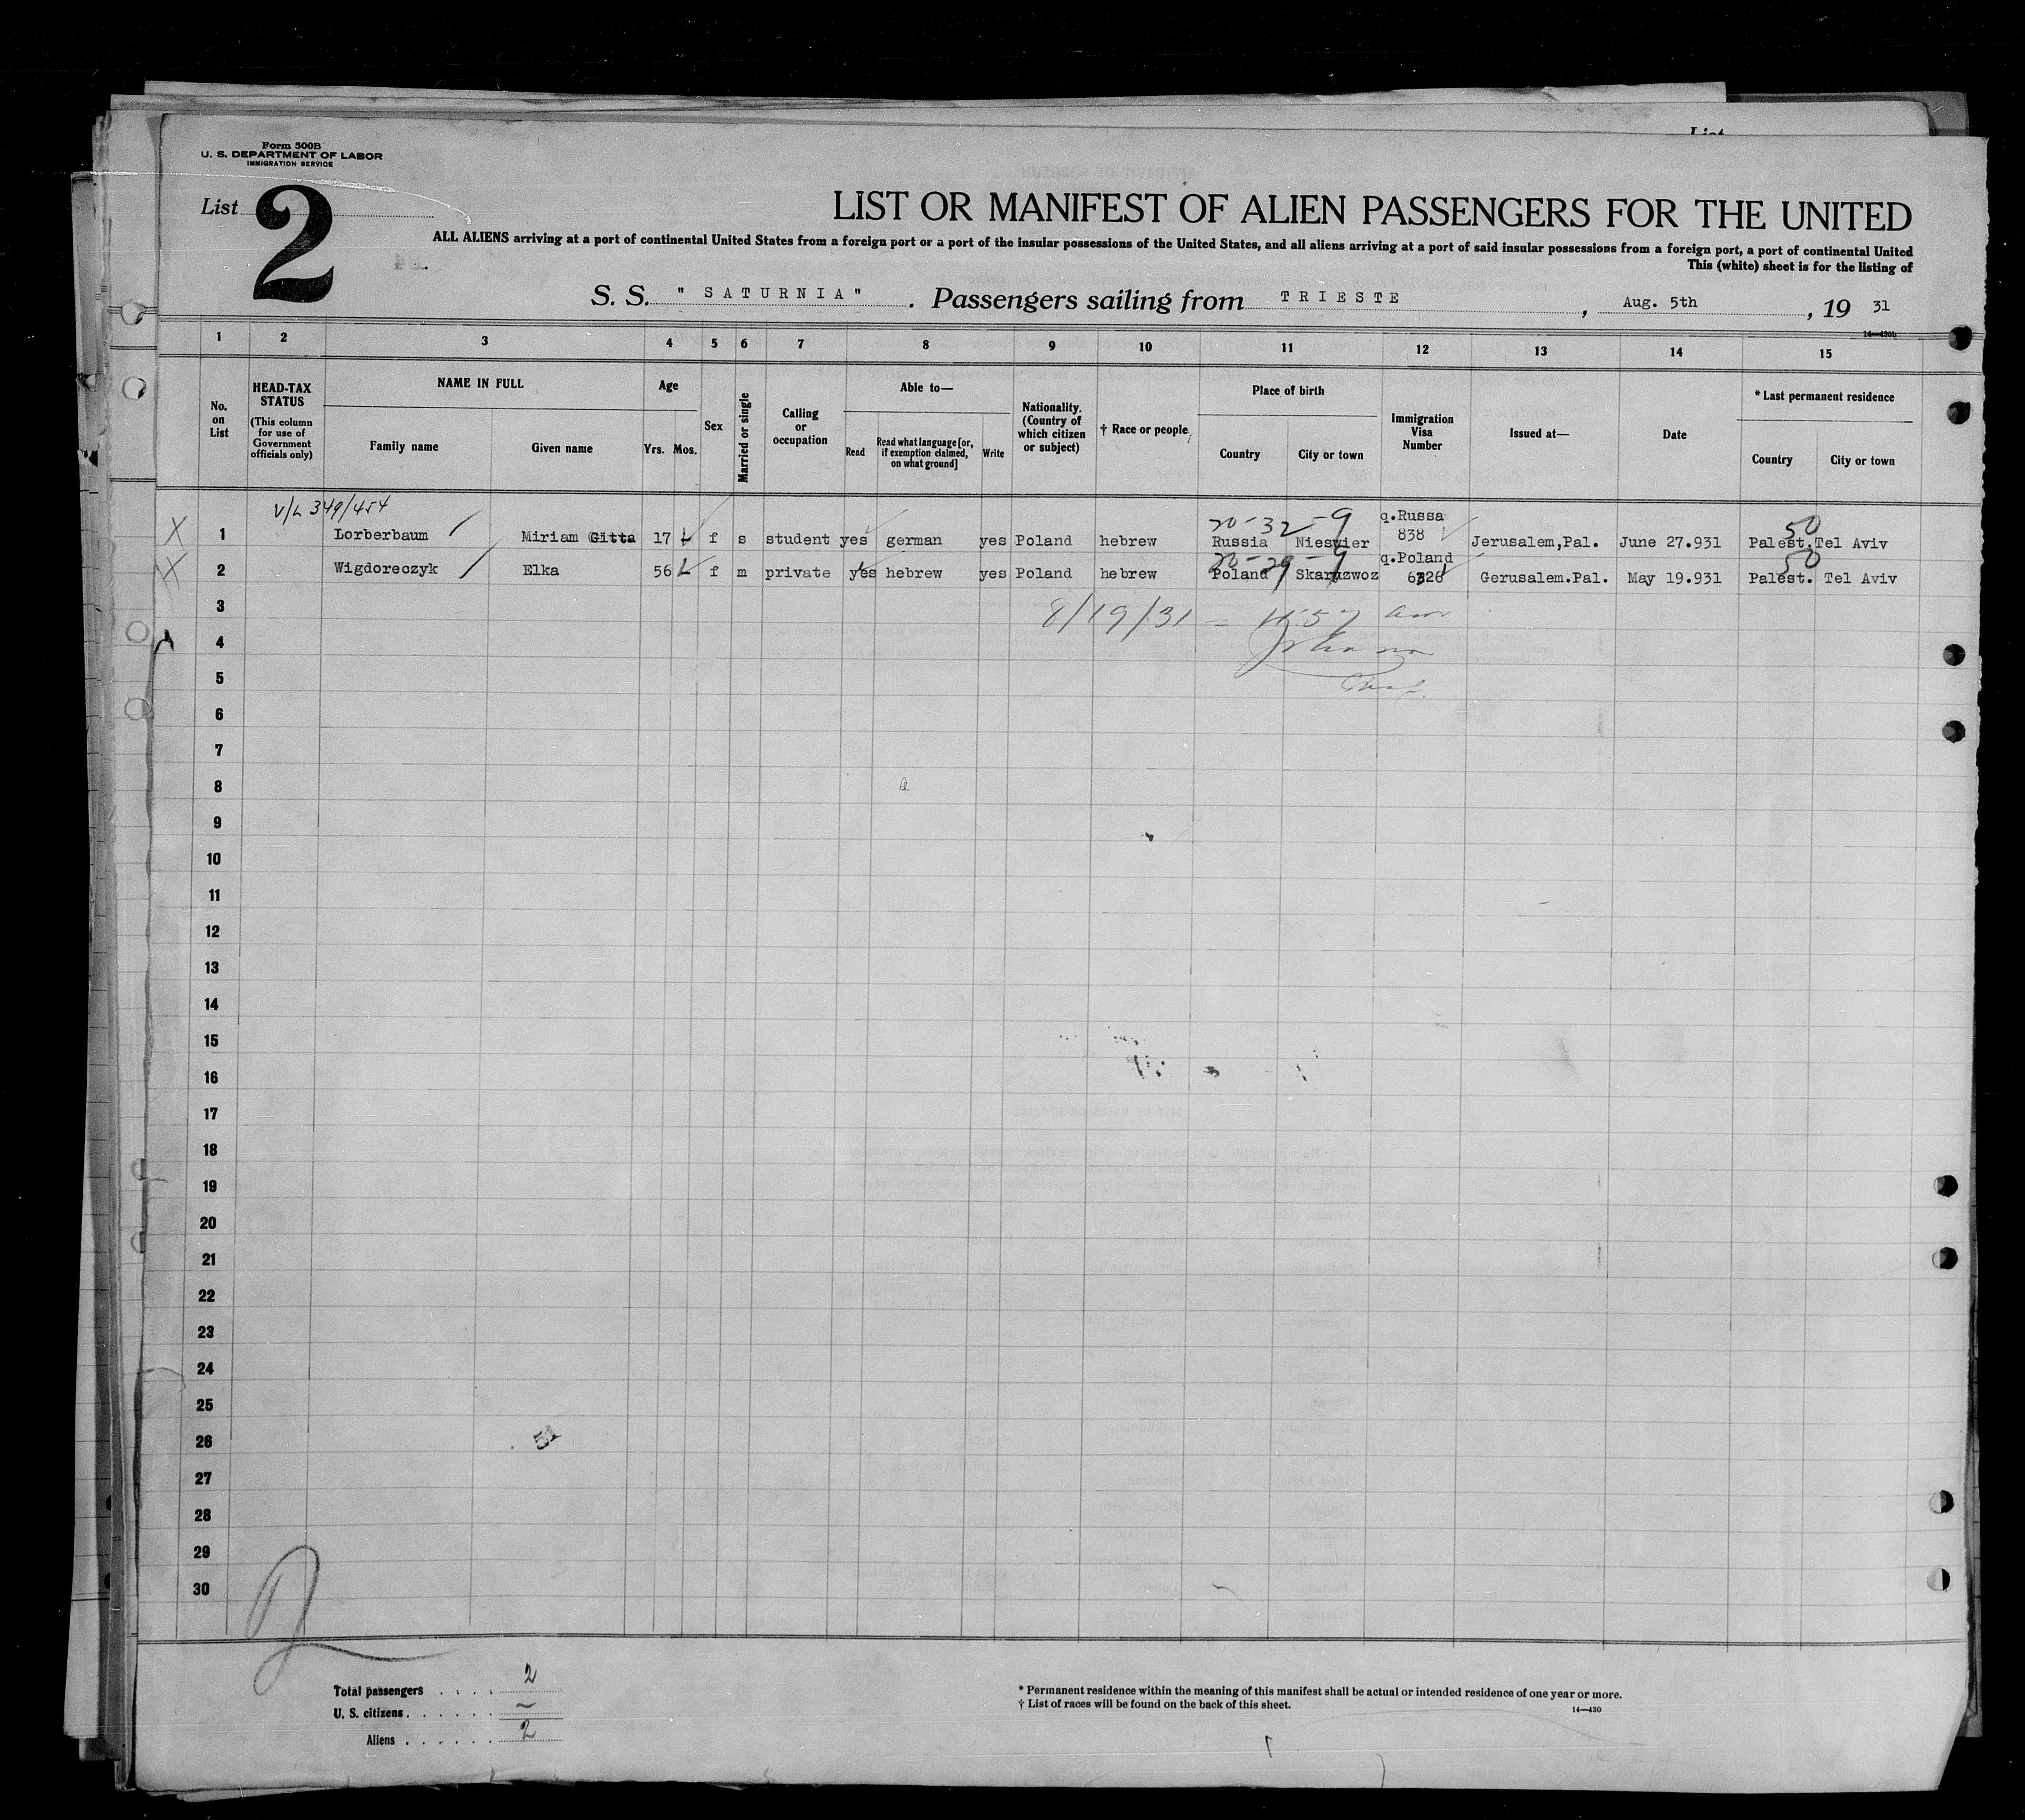 Form 500B
U. S. DEPARTMENT OF LABOR
IMMIGRATION SERVICE
List
2
LIST OR MANIFEST OF ALIEN PASSENGERS FOR THE UNITED
ALL ALIENS arriving at a port of continental United States from a foreign port or a port of the insular possessions of the United States, and all aliens arriving at a port of said insular possessions from a foreign port, a port of continental United
This (white) sheet is for the listing of
S. S. " SATURNIA " . Passengers sailing from TRIESTE , Aug. 5th , 19 31
14—430b
1 2 3 4 5 6 7 8 9 10 11 12 13 14 15
No. on List
HEAD-TAX STATUS
(This column for use of Government officials only)
NAME IN FULL
Family name Given name
Age
Yrs. Mos.
Sex
Married or single
Calling or occupation
Able to—
Read
Read what language [or, if exemption claimed, on what ground]
Write
Nationality. (Country of which citizen or subject)
† Race or people
Place of birth
Country City or town
Immigration Visa Number
Issued at—
Date
* Last permanent residence
Country City or town
V/L 349/454
20-32-9 q.Russa 50
1 Lorberbaum Miriam Gitta 17 f s student yes german yes Poland hebrew Russia Nieswier 838 Jerusalem,Pal. June 27.931 Palest. Tel Aviv
20-29-9 q.Poland 50
2 Wigdoreczyk Elka 56 f m private yes hebrew yes Poland hebrew Poland Skaruzwoz Gerusalem.Pal. May 19.931 Palest. Tel Aviv
3 8/19/31 =
4
5
6
7
8
9
10
11
12
13
14
15
16
17
18
19
20
21
22
23
24
25
26 51
27
28
29
30
2
Total passengers 2
U. S. citizens
Aliens 2
* Permanent residence within the meaning of this manifest shall be actual or intended residence of one year or more.
† List of races will be found on the back of this sheet.
14—430